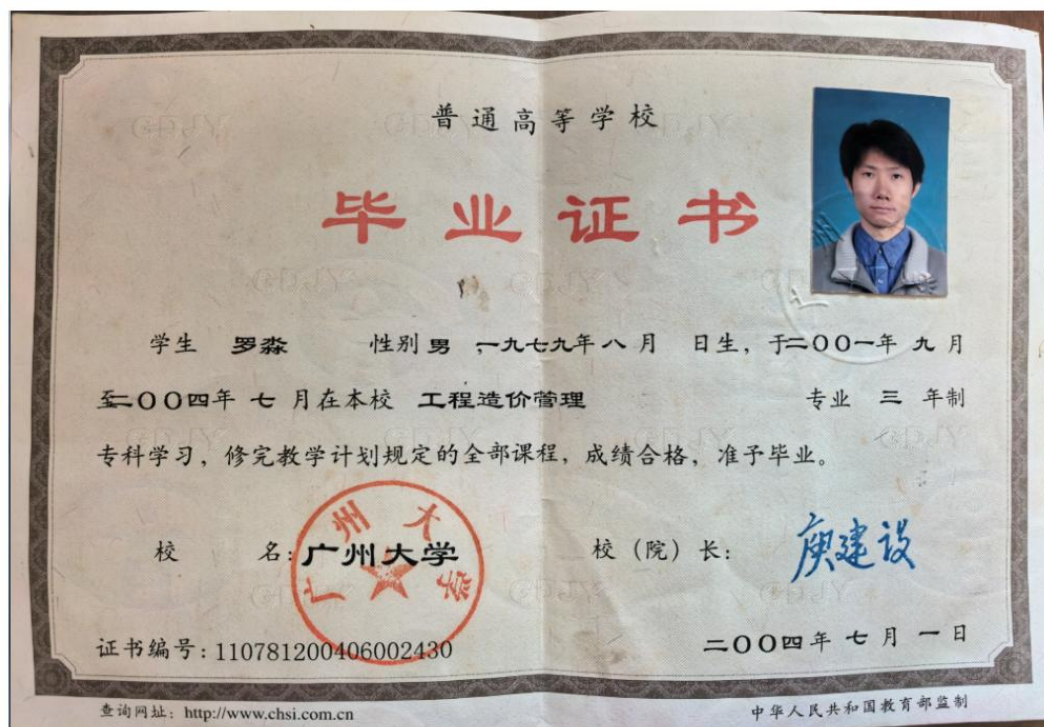 普通高等学校
毕业证书
学生 罗淼 性别 男 ,一九七九年 八 月 日生，于二〇〇一年 九 月
至二〇〇四年 七 月在本校 工程造价管理 专业 三 年制
专科学习，修完教学计划规定的全部课程，成绩合格，准予毕业。
广州大学
校 名：广州大学 校（院）长：庾建设
证书编号：110781200406002430 二〇〇四年 七 月 一 日
查询网址：http://www.chsi.com.cn 中华人民共和国教育部监制